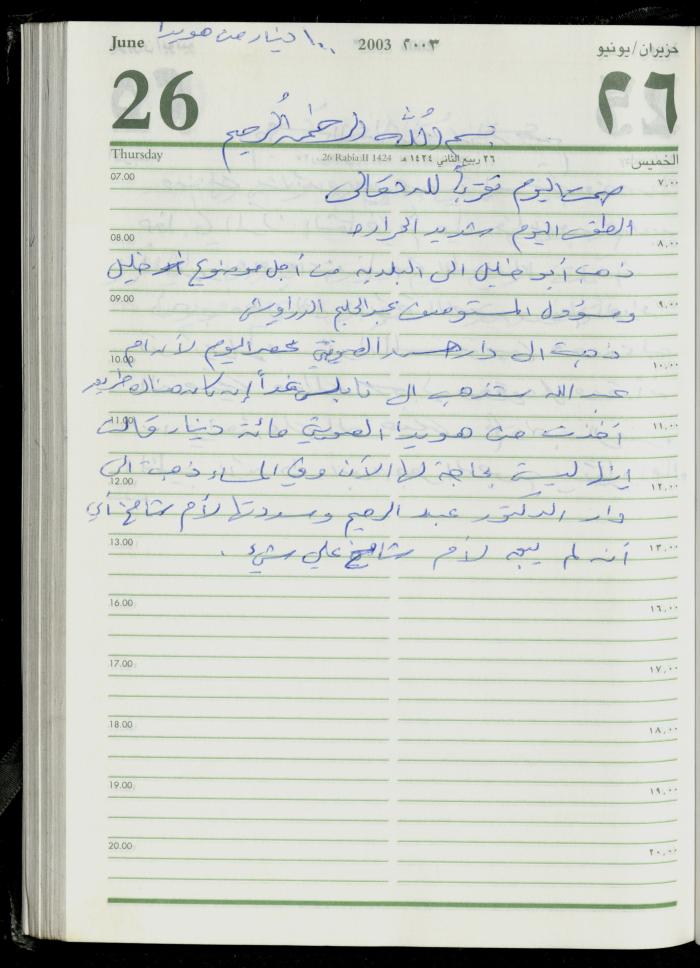 ١٠٠ دينار من هويدا
June 2003 ٢٠٠٣ حزيران/يونيو
26 ٢٦
بسم الله الرحمن الرحيم
Thursday 26 Rabia II 1424 ٢٦ ربيع الثاني ١٤٢٤ هـ الخميس
07.00 صمت اليوم تقرباً لله تعالى ٧,٠٠
الطقس اليوم شديد الحرارة
08.00 ٨,٠٠
ذهب أبو خليل الى البلدية من أجل موضوع خليل
09.00 ومسؤول المستوصف عبد الحليم الدراويش ٩,٠٠
ذهبت الى دار الصويتي عصر اليوم لأن ام
10.00 ١٠,٠٠
عبد الله ستذهب الى نابلس غداً إن كان هناك طريق
11.00 أخذت من هويدا الصويتي مائة دينار قالت ١١,٠٠
إنها ليست بحاجة لها الآن وفي المساء ذهبت الى
12.00 ١٢,٠٠
دار الدكتور عبد الرحيم وسددتها لأم شامخ أي
13.00 أنه لم يبق لأم شامخ علي شيء . ١٣,٠٠
16.00 ١٦,٠٠
17.00 ١٧,٠٠
18.00 ١٨,٠٠
19.00 ١٩,٠٠
20.00 ٢٠,٠٠